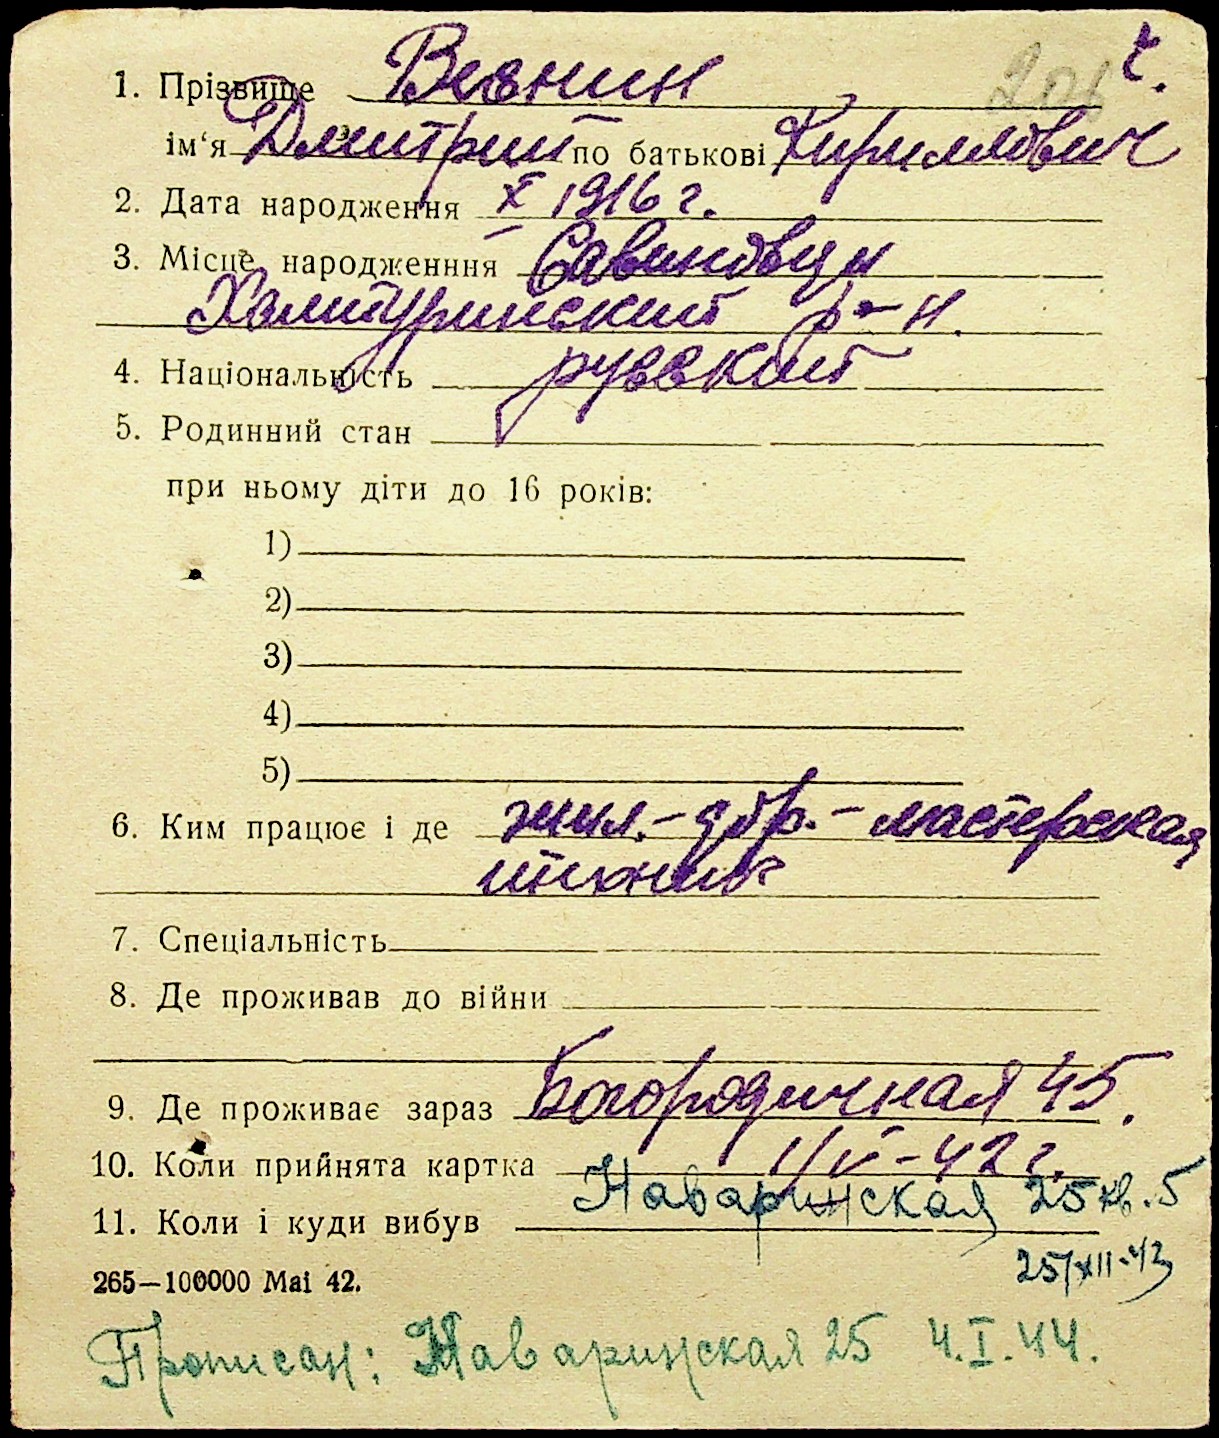 ч.
1. Прізвище Веснин
ім'я Дмитрий по батькові Кириллович
2. Дата народження X 1916 г.
3. Місце народженння Савиновцы
Халтуринский р-н.
4. Національність русский
5. Родинний стан
при ньому діти до 16 років:
1)
2)
3)
4)
5)
6. Ким працює і де жил.- - мастерская
техник
7. Спеціальність
8. Де проживав до війни
9. Де проживає зараз Богородичная 45.
10. Коли прийнята картка - 42 г.
Наваринская 25 кв. 5
11. Коли і куди вибув
25/XII-43
265—100000 Mai 42.
Прописан: Наваринская 25 4.I.44.